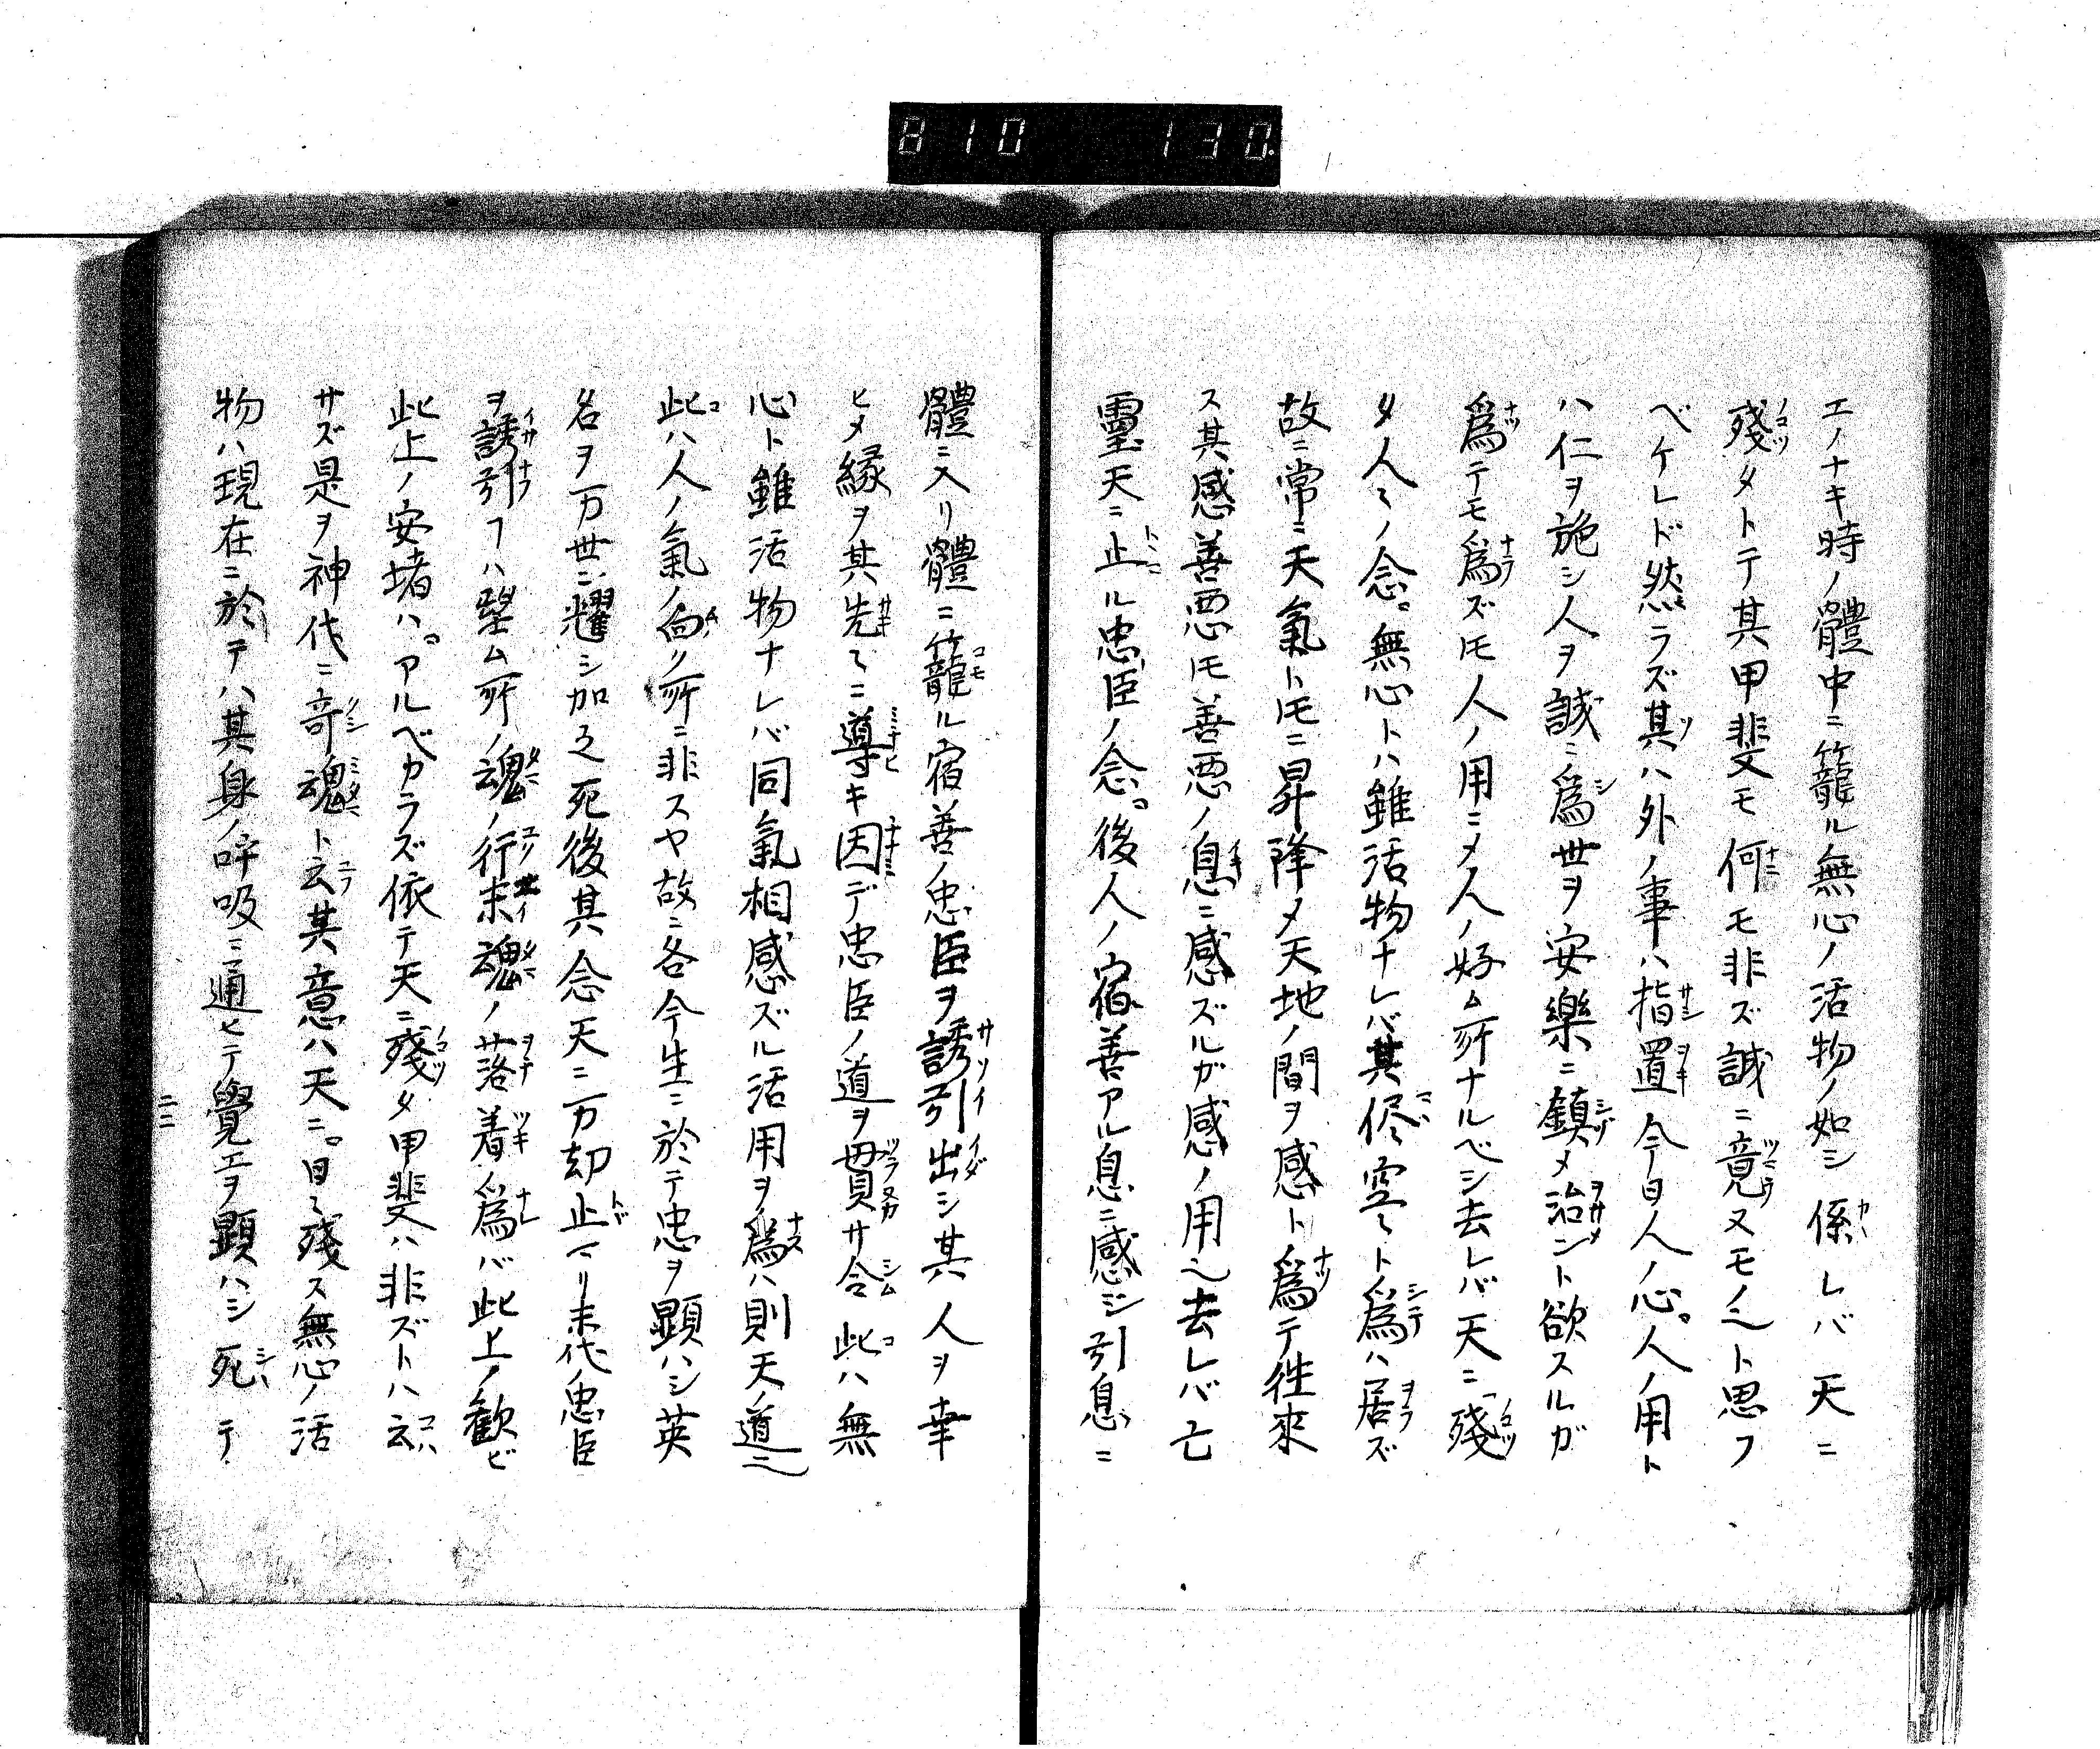 810 130.
エノナキ時ノ體中ニ籠ル無心ノ活物ノ如シ係レバ天ニ
殘タトテ其甲斐モ何モ非ズ誠ニ竟ヌモノ也ト思フ
ベケレド然ラズ其ハ外ノ事ハ指置今日人ノ心。人ノ用ト
ハ仁ヲ施シ人ヲ誠ニ爲世ヲ安樂ニ鎮メ治ント欲スルガ
爲テモ爲ズ𪜈人ノ用ニ〆人ノ好ム所ナルベシ去レバ天ニ殘
タ人〻ノ念。無心トハ雖活物ナレバ其侭空〻ト爲ハ居ズ
故ニ常ニ天氣ト𪜈ニ昇降〆天地ノ間ヲ感ト爲テ徃來
ス其感善悪𪜈善悪ノ息ニ感ズルガ感ノ用也去レバ亡
霊天ニ止ル忠臣ノ念。後人ノ宿善アル息ニ感ジ引息ニ
體ニ入リ體ニ籠ル宿善ノ忠臣ヲ誘引出シ其人ヲ幸
ヒ〆縁ヲ其先〻ニ導キ因デ忠臣ノ道ヲ貫サ令此ハ無
心ト雖活物ナレバ同氣相感ズル活用ヲ爲ハ則天ノ道也
此ハ人ノ氣ノ向ク所ニ非スヤ故ニ各今生ニ於テ忠ヲ顕ハシ英
名ヲ万世ニ耀シ加之死後其念天ニ万却止マリ末代忠臣
ヲ誘引フハ望ム所ノ魂ノ行末魂ノ落着ノ爲バ此上ノ歓ビ
此上ノ安堵ハ。アルベカラズ依テ天ニ殘タ甲斐ハ非ズトハ云
サズ是ヲ神代ニ奇魂ト云其意ハ天ニ。日〻殘ス無心ノ活
物ハ現在ニ於テハ其身ノ呼吸ニ通ヒテ覺エヲ顕ハシ死テ
二三